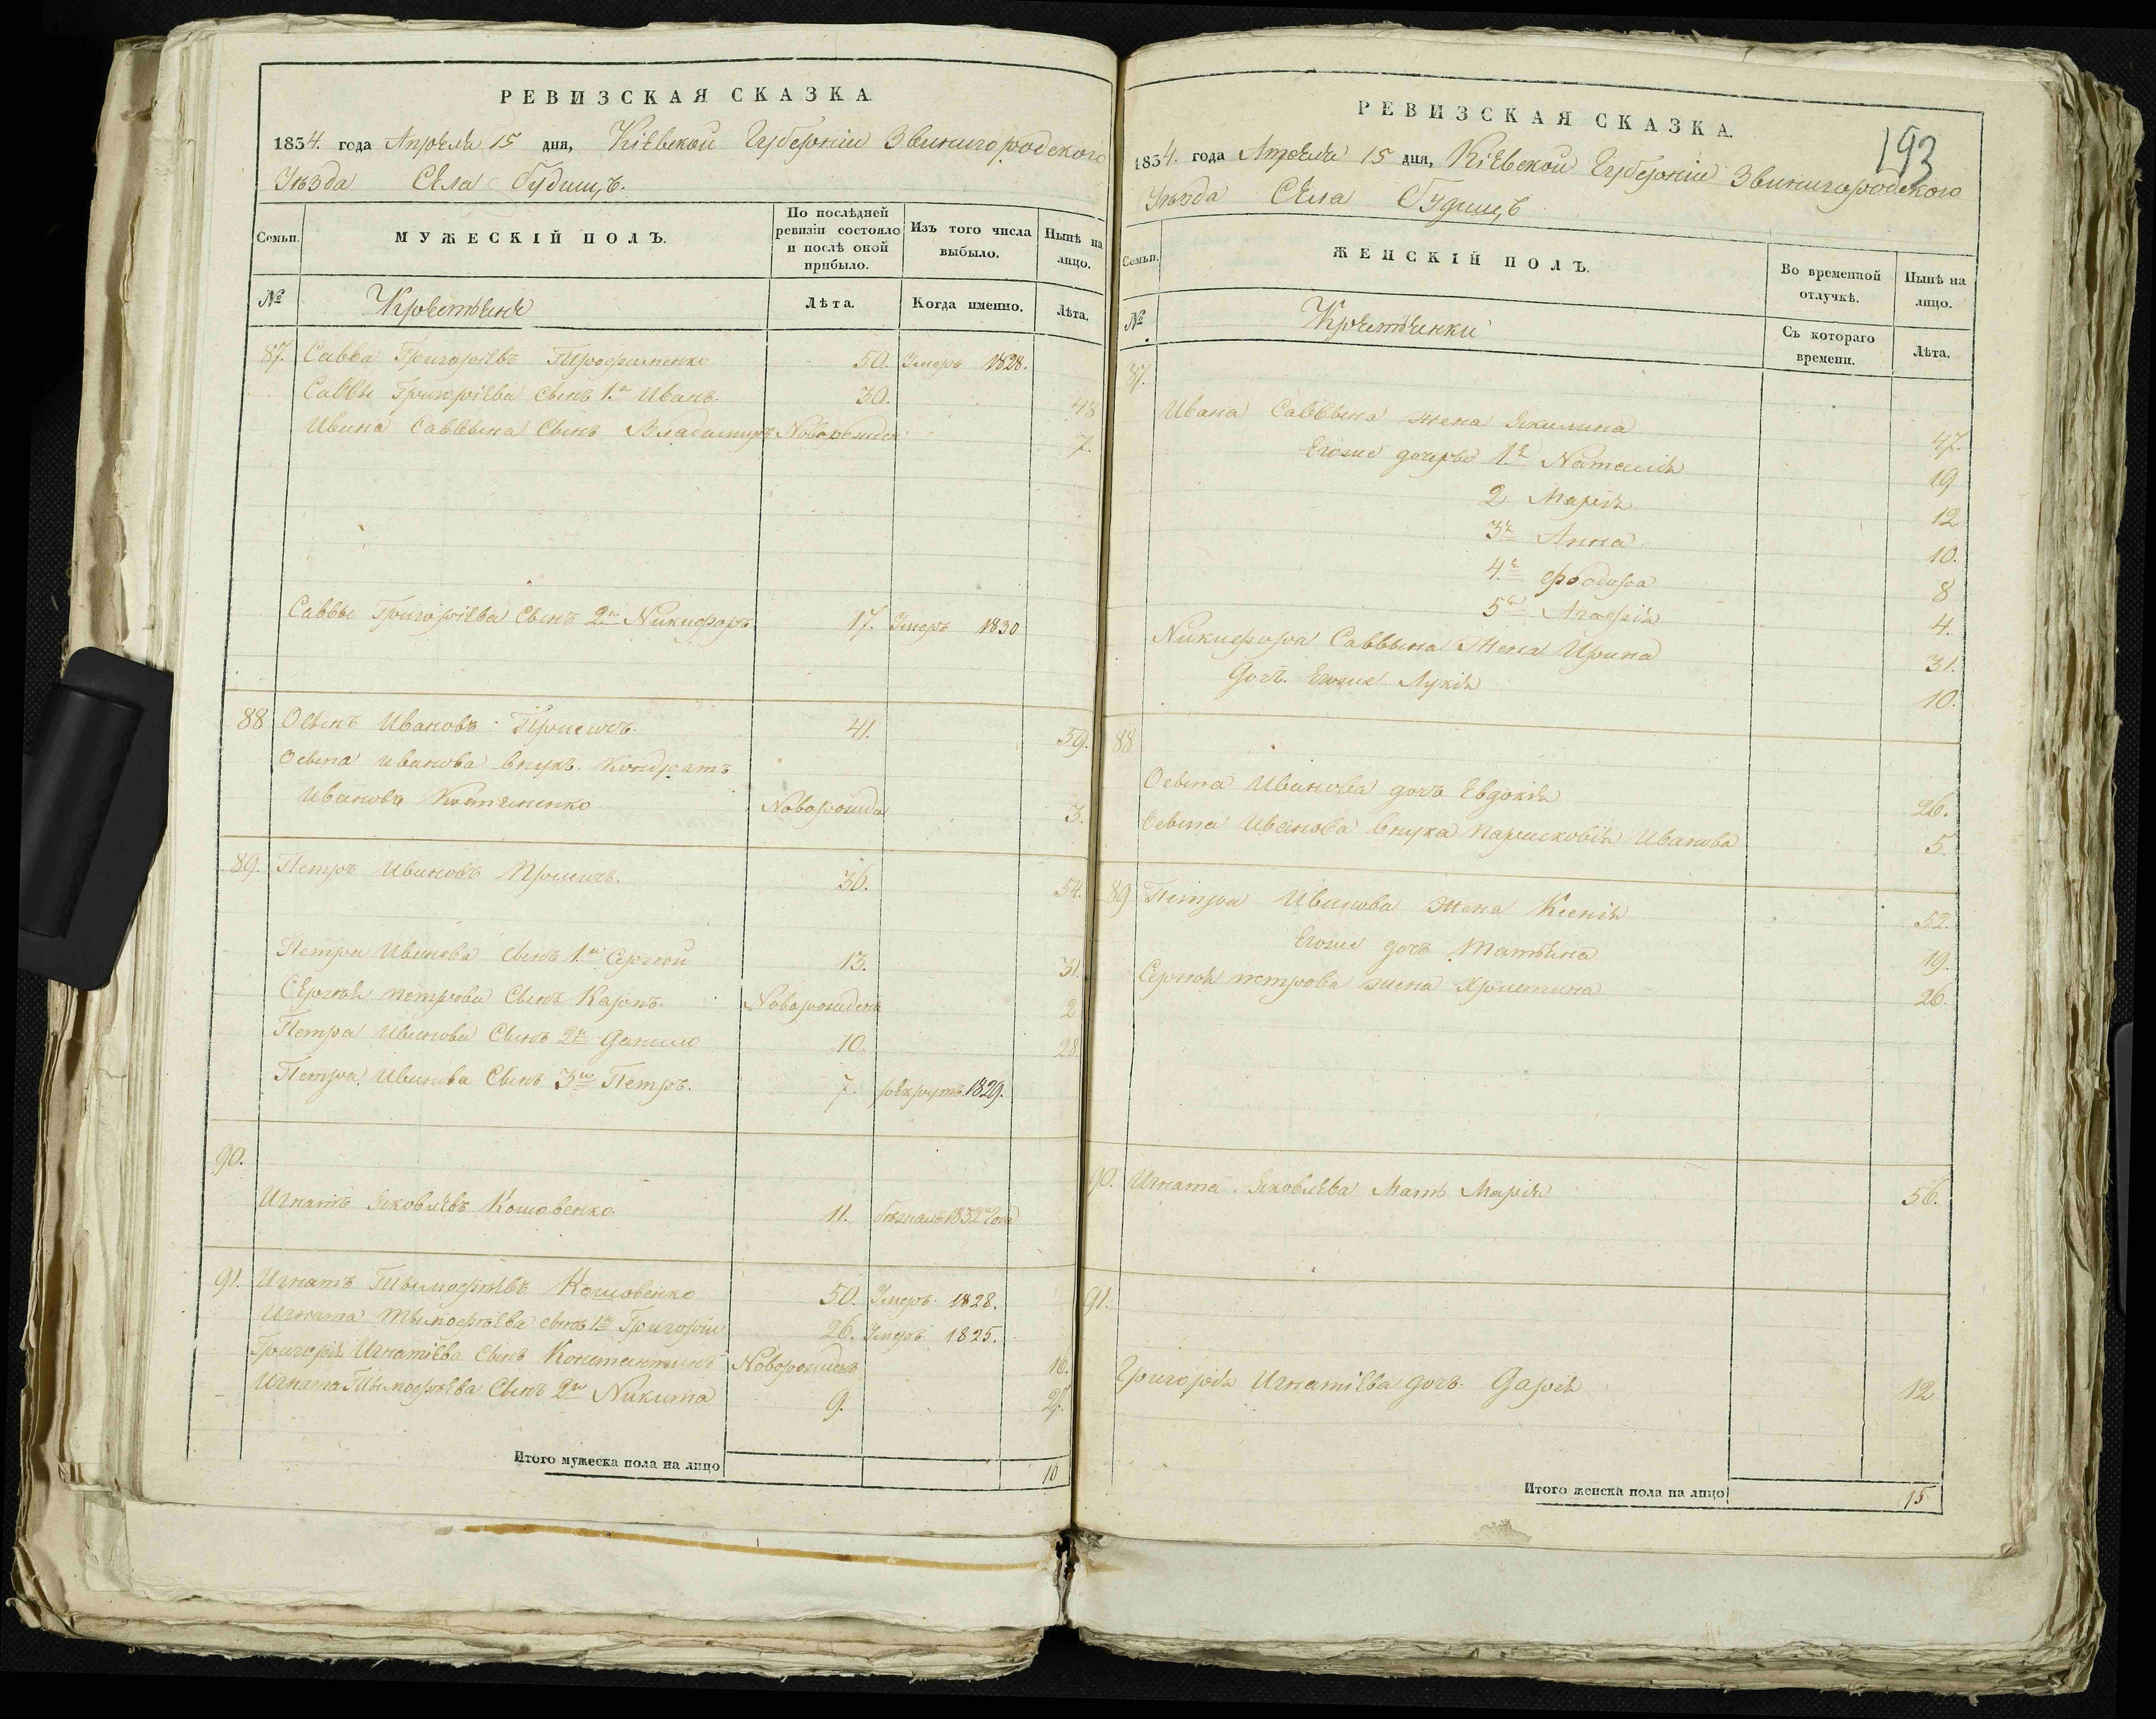 РЕВИЗСКАЯ СКАЗКА
1834. года Апреля 15 дня, Кіевской Губерніи Звинигородского
Уѣзда Села Будищъ.
Семьи.
МУЖЕСКІЙ ПОЛЪ.
По послѣдней ревизіи состояло и послѣ оной прибыло.
Изъ того числа выбыло.
Нынѣ на лицо.
№
Крестьяне
Лѣта.
Когда именно.
Лѣта.
87. Савва Григоріевъ 50. Умеръ 1828.
Саввы Григоріева Сынъ 1.й Иванъ. 30. 48
Ивана Саввына Сынъ Владимиръ Новорожден 7.
Саввы Григоріева Сынъ 2й Никифоръ 17. Умеръ 1830
88 Осыпъ Ивановъ 41. 59.
Осыпа иванова внукъ. Кондратъ
Ивановъ Новорожде 3.
89. Петръ Ивановъ 36. 54.
Петра Иванова сынъ 1.й Сергей 13. 31.
Сергѣя петрова Сынъ Карпъ. Новорожденъ 2
Петра Иванова Сынъ 2й Данило 10. 28.
Петра Иванова Сынъ 3й Петръ. 7. рекрутъ 1829.
90.
Игнатъ Яковлевъ Кошовенко. 11. бежалъ 1832го Года
91. Игнатъ Тымофѣевъ Кошовенко 50. Умеръ. 1828.
Игната Тымофѣева сынъ 1й Григорій 26. Умеръ 1825.
Григорія Игнатіева Сынъ Константынъ Новорожденъ 16.
Игната Тымофѣева Сынъ 2й Никита 9. 27.
Итого мужеска пола на лицо 10
РЕВИЗСКАЯ СКАЗКА.
193
1834. года Апреля 15 дня, Кіевской Губерніи Звинигородского
Уѣзда Села Будищъ
Семьи.
ЖЕНСКІЙ ПОЛЪ.
Во временной отлучкѣ.
Нынѣ на лицо.
№
Крестьянки
Съ котораго времени.
Лѣта.
87.
Ивана Саввына жена Якилина 47.
Егоже дочеръ 1.я Наталія 19
2 Марія 12.
3я Анна 10.
4.я Ѳеодора 8
5я Агафія 4.
Никифора Саввына Жена Ирина 31.
Дочъ. Егоже Лукія 10.
88
Осыпа Иванова дочъ Евдокія 26.
Осыпа Иванова внука Парасковія Иванова 5.
89 Петра Иванова жена Ксенія 52.
Егоже дочъ Татьяна 19.
Сергѣя петрова жена Христина 26.
90. Игната Яковлева Мать Марія 56.
91.
Григорія Игнатіева дочъ. Дарія 12
Итого женска пола на лицо 15